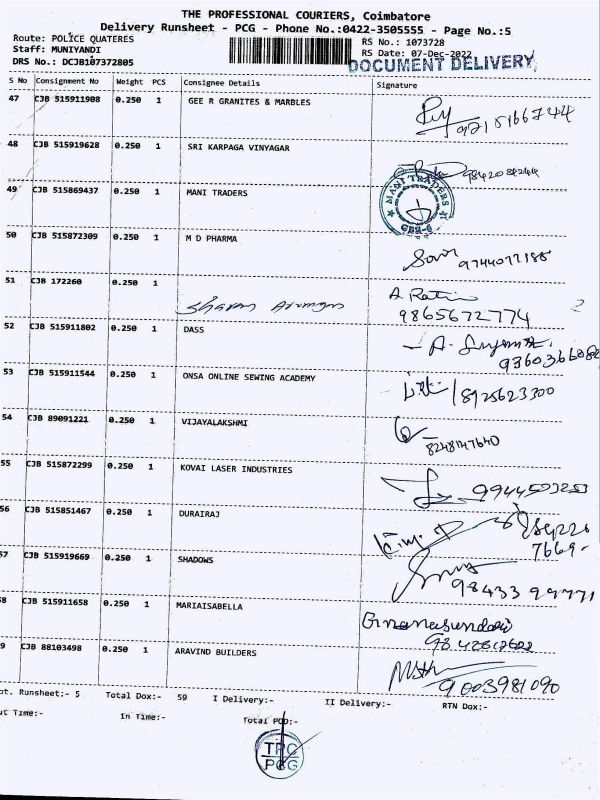 THE PROFESSIONAL COURIERS, Coimbatore
Delivery Runsheet - PCG - Phone No.:0422-3505555 - Page No.:5
Route: POLICE QUATERES
RS No.: 1073728
Staff: MUNIYANDI
RS Date: 07-Dec-2022
DRS No.: DCJB107372805
DOCUMENT DELIVERY
S No Consignment No Weight PCS Consignee Details Signature
47 CJB 515911908 0.250 1 GEE R GRANITES & MARBLES
48 CJB 515919628 0.250 1 SRI KARPAGA VINYAGAR
49 CJB 515869437 0.250 1 MANI TRADERS MANI TRADERS
50 CJB 515872309 0.250 1 M D PHARMA 9744077188
51 CJB 172260 0.250 1 Sharan
9865672774
52 CJB 515911802 0.250 1 DASS
53 CJB 515911544 0.250 1 ONSA ONLINE SEWING ACADEMY 8925623300
54 CJB 89091221 0.250 1 VIJAYALAKSHMI
8248147640
55 CJB 515872299 0.250 1 KOVAI LASER INDUSTRIES 9944503253
56 CJB 515851467 0.250 1 DURAIRAJ
7669
57 CJB 515919669 0.250 1 SHADOWS 98433 99771
58 CJB 515911658 0.250 1 MARIAISABELLA Gnanasundari
59 CJB 88103498 0.250 1 ARAVIND BUILDERS 9003981090
pt. Runsheet:- 5 Total Dox:- 59 I Delivery:- II Delivery:- RTN Dox:-
ut Time:- In Time:- Total POD:-
TPC
PCG